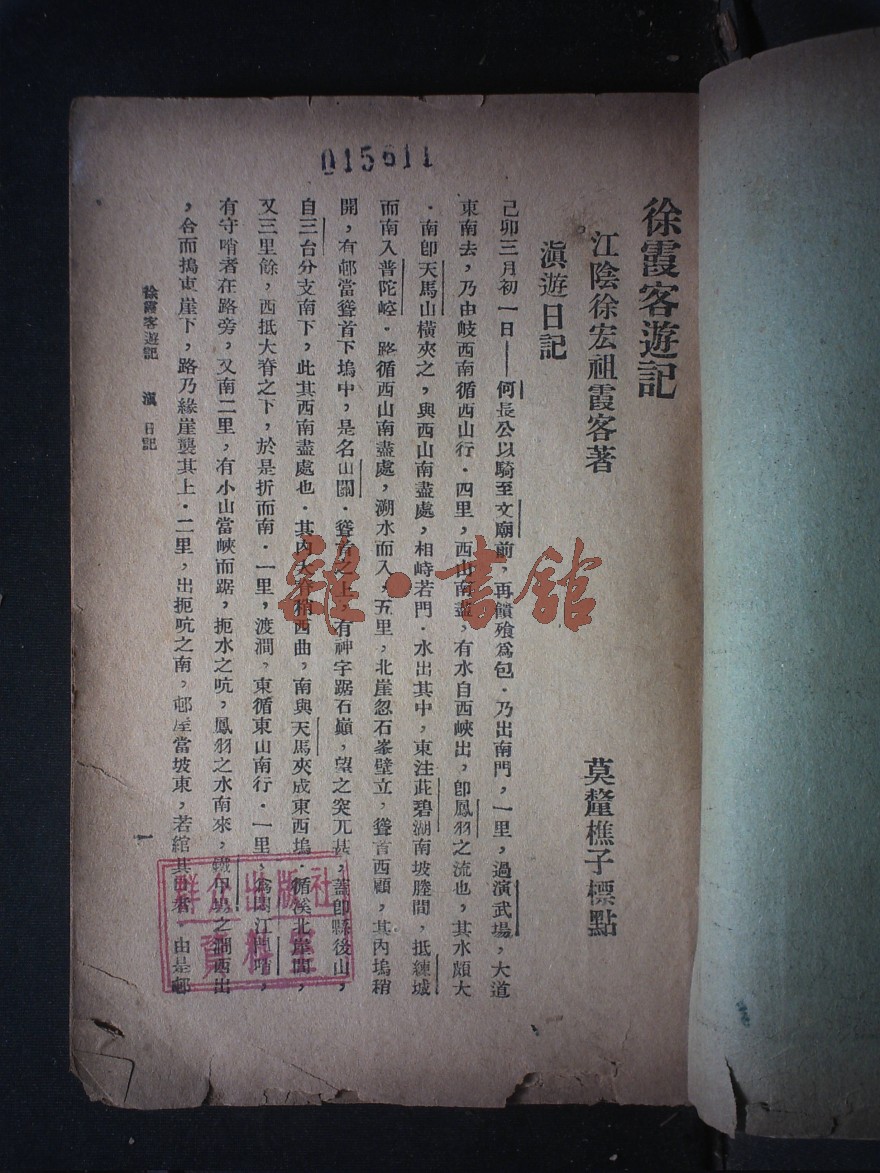 015611
徐霞客遊記
江陰徐宏祖霞客著
莫釐樵子標點
滇遊日記
己卯三月初一日——何長公以騎至文廟前，再饋飱爲包．乃出南門，一里，過演武場，大道
東南去，乃由岐西南循西山行．四里，西山南盡，有水自西峽出，卽鳳羽之流也，其水頗大
．南卽天馬山橫夾之，與西山南盡處，相峙若門．水出其中，東注茈碧湖南坡塍間，抵練城
而南入普陀崆．路循西山南盡處，溯水而入，五里，北崖忽石峯壁立，聳首西顧，其內塢稍
開，有邨當聳首下塢中，是名山關．聳首之上，有神宇踞石巔，望之突兀甚，蓋卽縣後山，
自三台分支南下，此其西南盡處也．其內大脊稍西曲，南與天馬夾成東西塢．循溪北岸間，
又三里餘，西抵大脊之下，於是折而南．一里，渡澗，東循東山南行．一里，爲江哨，
有守哨者在路旁，又南二里，有小山當峽而踞，扼水之吭，鳳羽之水南來，鐵甲場之澗西出
，合而搗東崖下，路乃緣崖襲其上．二里，出扼吭之南，邨屋當坡東，若綰其口者．由是邨
徐霞客遊記　滇　日記
一
雜·書館
群众出版社
資料室